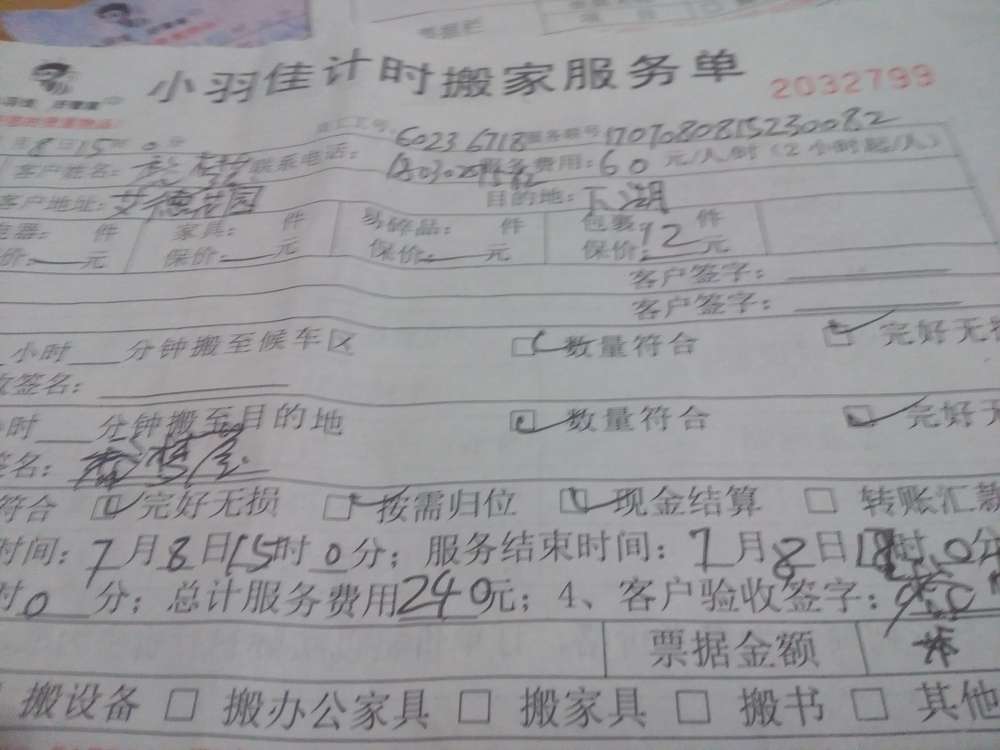 小羽佳计时搬家服务单 2032799
月8日15时0分 工号:60236718服务编号170708081523082
客户姓名: 联系电话: 服务费用:60元/人/时(2小时起/人)
客户地址:艾德花园 目的地:下湖
电器: 件 家具: 件 易碎品: 件 包裹:12件
保价: 元 保价: 元 保价: 元 保价: 元
客户签字:
客户签字:
小时 分钟搬至候车区 数量符合 完好无损
签名:
小时 分钟搬至目的地 数量符合 完好无
签名:
符合 完好无损 按需归位 现金结算 转账汇款
时间:7月8日15时0分;服务结束时间:7月8日 时0分
时0分;总计服务费用240元;4、客户验收签字:
票据金额
搬设备 搬办公家具 搬家具 搬书 其他